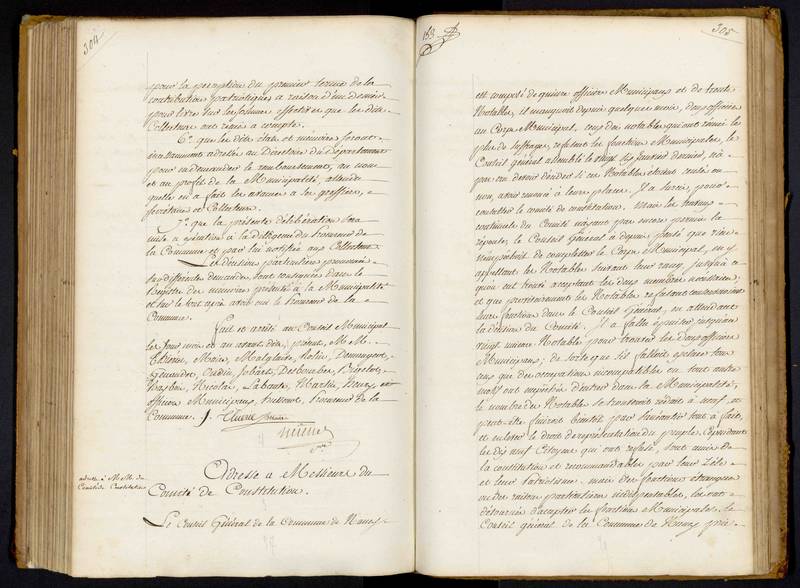 304
pour la perception du premier terme de la
contribution patriotique a raison d'un denier
pour livre sur les sommes effectives que les dits
Collecteurs ont reçus a compte.
6.º que les dits états et mémoires seront
incessamment adressés au Directoire du département
pour en demander le remboursement, au nom
et au profit de la Municipalité, attendu
quelle en a fait les avances a ses greffiers,
Secretaires et Collecteurs.
7.º que la présente délibération sera
mise a éxécution à la diligence du Procureur de
la Commune, et par lui notifiée aux Collecteurs
Les décisions particulières prononcées
sur différentes demandes, sont consignées dans le
Registre des mémoires présentés à la Municipalité
et sur le tout après avoir oui le Procureur de la
Commune.
fait et arrêté au Conseil Municipal
les jour mois et an avant dits, présents, M.M.
Thieriet, Maire, Malglaive, Rolin,
Oudin, Jobart, Desbourbes, Bigelot,
Nicolas, Lalande, Martin, Henry,
officiers Municipaux, Procureur de la
Commune. /.
adresse à M.M. du
Comité de Constitution
Adresse a Messieurs du
Comité de Constitution.
Le Conseil Général de la Commune de Nancy
153
305
est composé de quinze officiers Municipaux et de trente
Notables, il manquoit depuis quelques mois, deux officiers
au Corps Municipal, ceux des notables qui ont réuni le
plus de suffrages, refusent les fonctions Municipales, le
Conseil général assemblé le vingt six janvier dernier, n'a
pas cru devoir décider si ces Notables étoient censés ou
non, avoir renoncé à leurs places. Il a sursis, pour
consulter le comité de constitution. Mais les travaux
continuels du Comité n'ayant pas encore permis la
réponse, le Conseil Général a depuis pensé que rien
n'empêchoit de completter le Corps Municipal, en y
appellant les Notables suivant leur rang, jusqu'à ce
qu'on eut trouvé acceptant les deux membres nécessaires;
et que provisoirement les Notables refusant conserveroient
leurs fonctions dans le Conseil Général, en attendant
la décision du Comité. Il a fallu épuiser jusqu'au
vingt unième Notable pour trouver les deux officiers
Municipaux; de sorte que s'il falloit exclure tous
ceux que des occupations incompatibles ou tout autre
motif ont empêchés d'entrer dans la Municipalité,
le nombre des Notables se trouveroit réduit à neuf, et
peut-être finiroit bientôt par s'anéantir tout à fait,
et enlever le droit de représentation du peuple. Cependant
les dix neuf Citoyens qui ont refusé, sont amis de
la constitution et recommandables par leur Zèle
et leur Patriotisme. mais des fonctions étrangeres
ou des raisons particulieres indispensables, les ont
détournés d'accepter les fonctions Municipales. Le
Conseil général de la Commune de Nancy prie